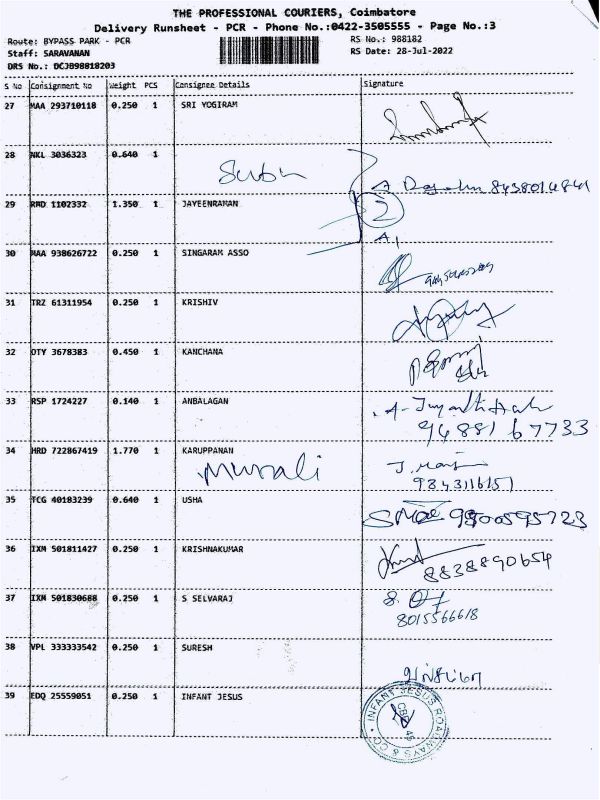 THE PROFESSIONAL COURIERS, Coimbatore
Delivery Runsheet - PCR - Phone No.:0422-3505555 - Page No.:3
Route: BYPASS PARK - PCR RS No.: 988182
Staff: SARAVANAN RS Date: 28-Jul-2022
DRS No.: DCJB98818203
S No Consignment No Weight PCS Consignee Details Signature
27 MAA 293710118 0.250 1 SRI YOGIRAM
28 NKL 3036323 0.640 1
8438014841
29 RMD 1102332 1.350 1 JAYEENRAMAN 2
30 MAA 938626722 0.250 1 SINGARAM ASSO
31 TRZ 61311954 0.250 1 KRISHIV
32 OTY 3678383 0.450 1 KANCHANA
33 RSP 1724227 0.140 1 ANBALAGAN
94881 67733
34 HRD 722867419 1.770 1 KARUPPANAN
Murali
9843116151
35 TCG 40183239 0.640 1 USHA
9500595723
36 IXM 501811427 0.250 1 KRISHNAKUMAR
8838890654
37 IXM 501830688 0.250 1 S SELVARAJ
8015566618
38 VPL 333333542 0.250 1 SURESH
39 EDQ 25559051 0.250 1 INFANT JESUS
INFANT JESUS ROADWAYS & CO
CBE 45